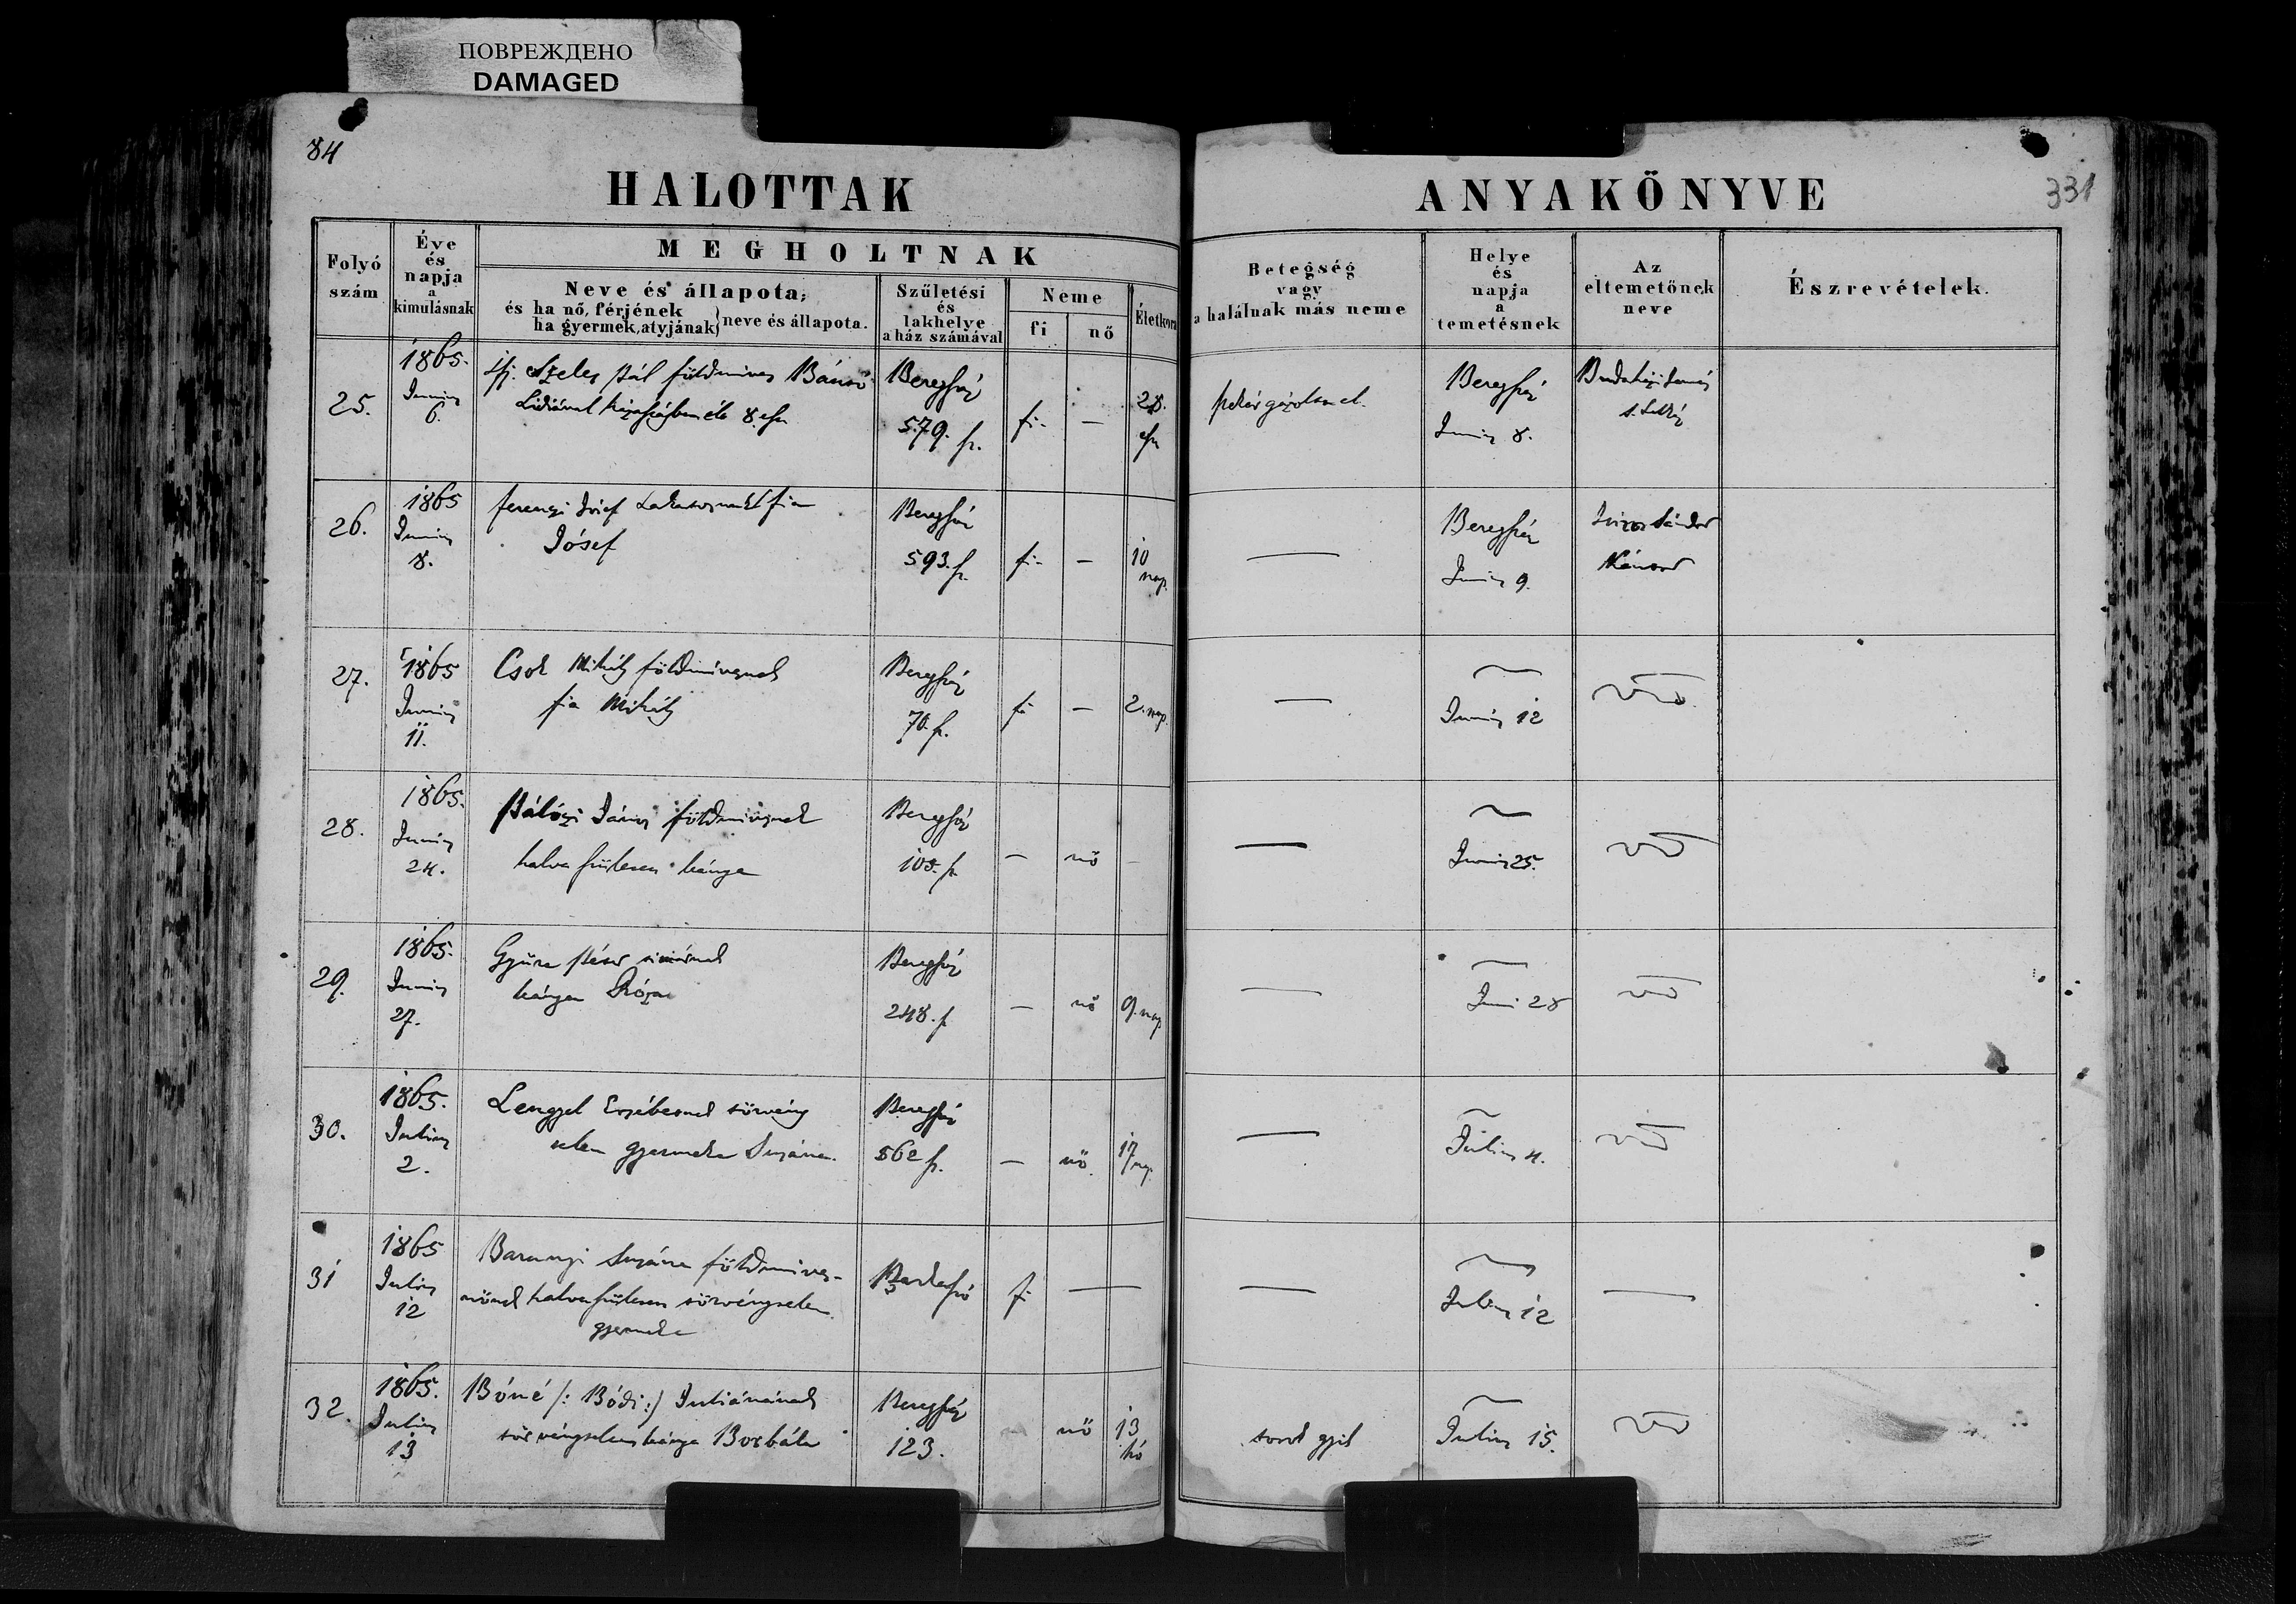 ПОВРЕЖДЕНО
DAMAGED
84
HALOTTAK
Folyó szám
Éve és napja a kimulásnak
MEGHOLTNAK
Neve és állapota,
és ha nő, férjének
ha gyermek, atyjának } neve és állapota.
Születési és lakhelye a ház számával
Neme
fi
nő
Életkora
25.
1865.
Junius
6.
ifj. Szeles Pál földmives Bánsó
Lidiával házasságban élt 8. év
Beregszáz
579. sz.
fi-
—
28.
év
26.
1865
Junius
8.
Ferenczi József Lakatosnak fia
József
Beregszáz
593. sz.
fi-
—
10
nap.
27.
1865
Junius
11.
Csok Mihály földmivesnek
fia Mihály
Beregszáz
70. sz.
fi
—
2. nap.
28.
1865.
Junius
24.
Pálóczi János földmivesnek
halva született leánya
Beregszáz
sz.
—
nő
—
29.
1865.
Junius
27.
Gyüre Péter
leánya Róza
Beregszáz
248. sz
—
nő
9. nap
30.
1865.
Julius
2.
Lengyel Erzsébetnek törvény
telen gyermeke Zsuzsánna.
Beregszáz
562 sz.
—
nő.
17
31
1865
Julius
12
Baranyi Zsuzsánna földmives-
nőnek halva született törvénytelen
gyermeke
fi
—
32.
1865.
Julius
13
Bóné /: Bódi :/ Juliánának
törvénytelen leánya Borbála
Beregszáz
123.
nő
13
hó
ANYAKÖNYVE
331
Betegség vagy a halálnak más neme
Helye és napja a temetésnek
Az eltemetőnek neve
Észrevételek.
Beregszáz
Junius 8.
—
Beregszáz
Junius 9.
Sándor
Kántor
—
Junius 12
—
Junius 25.
—
Juni 28
—
Julius 4.
—
Julius 12
—
torok gyík
Julius 15.